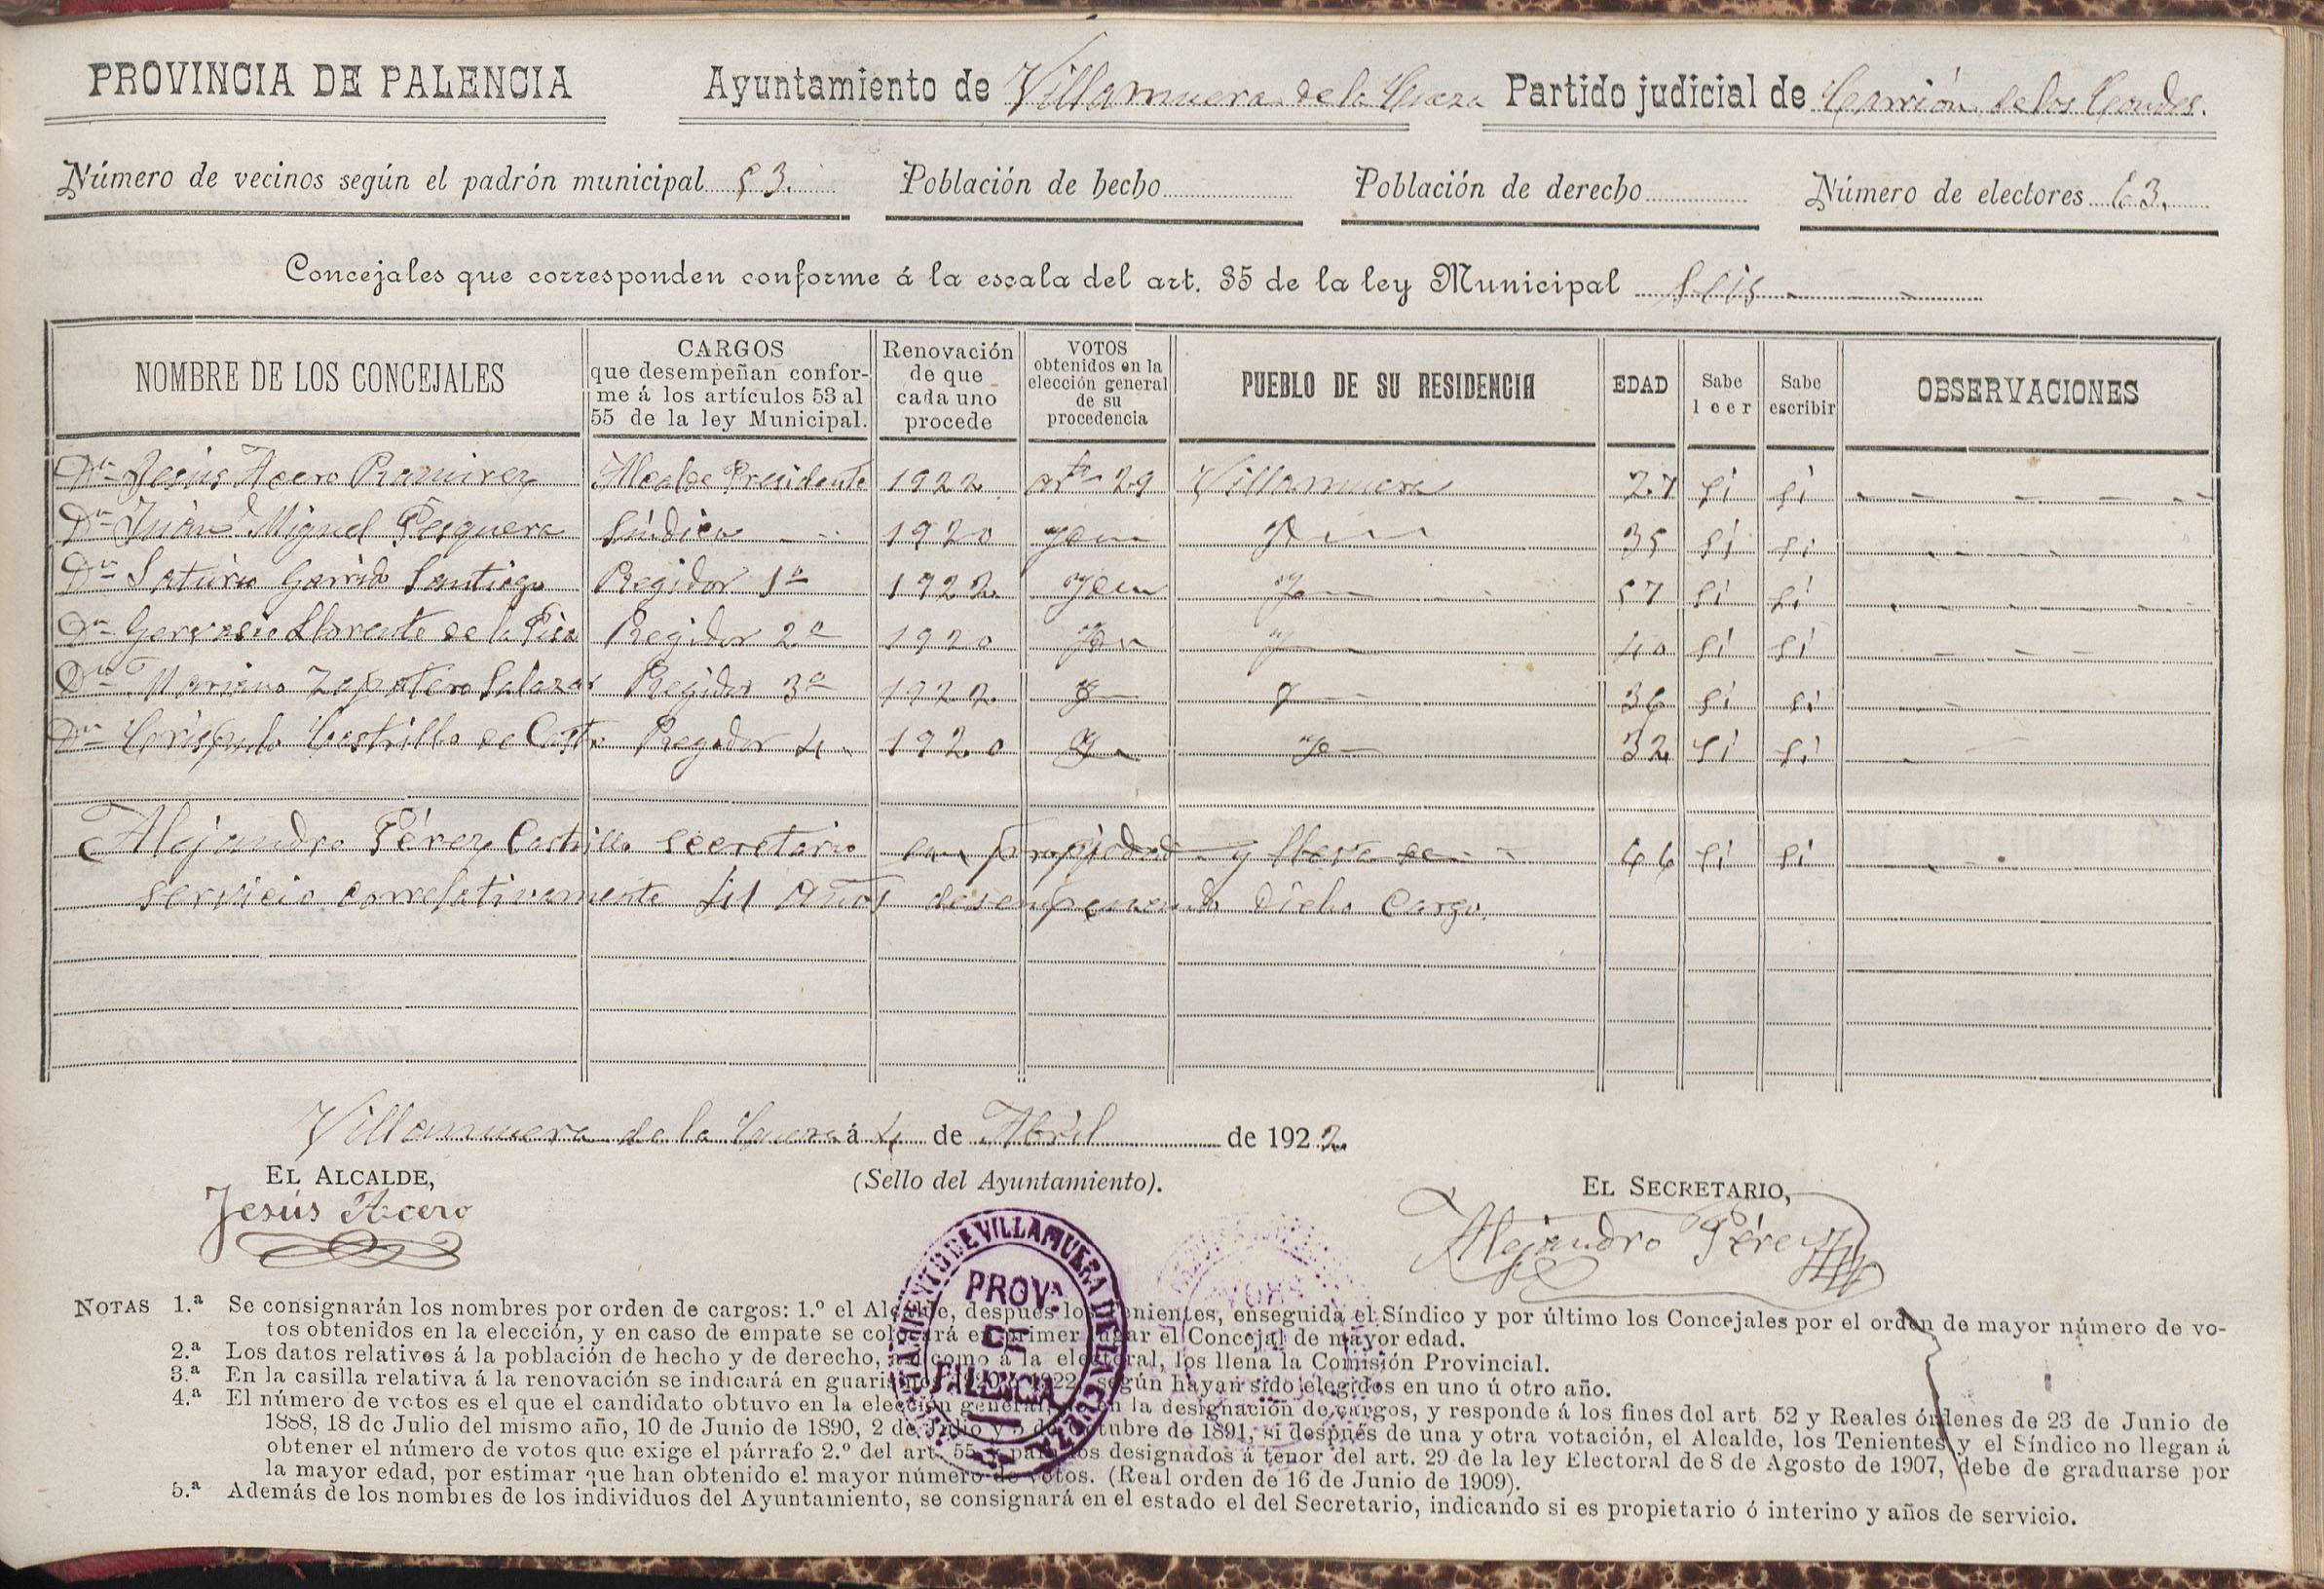 PROVINCIA DE PALENCIA Ayuntamiento de Villamuera de la Cueza Partido judicial de Carrión de los Condes.
Número de vecinos según el padrón municipal 53. Población de hecho Población de derecho Número de electores 63.
Concejales que corresponden conforme á la escala del art. 35 de la ley Municipal seis
NOMBRE DE LOS CONCEJALES
CARGOS
que desempeñan confor-
me á los artículos 53 al
55 de la ley Municipal.
Renovación
de que
cada uno
procede
VOTOS
obtenidos en la
elección general
de su
procedencia
PUEBLO DE SU RESIDENCIA
EDAD
Sabe
leer
Sabe
escribir
OBSERVACIONES
Dn Jesús Acero Ramirez Alcalde Presidente 1922 art 29 Villamuera 27 si si
Dn Juan Miguel Pesquera Síndico 1920 35 si si
Dn Saturio Garrido Santiago Regidor 1º 1922 57 si si
Dn Gervasio Llorente de la Pisa Regidor 2º 1920 40 si si
Dn Mariano Zapatero Salazar Regidor 3º 1922 36 si si
Dn Crispulo Castrillo de Castro Regidor 4 1920 32 si si
Alejandro Pérez Castrillo secretario en propiedad y lleva de 66 si si
servicio correlativamente 41 años desempenando dicho cargo.
Villamuera de la Cueza á 4 de Abril de 1922.
EL ALCALDE, (Sello del Ayuntamiento). EL SECRETARIO,
Jesús Acero Alejandro Pérez
AYUNTAMIENTO DE VILLAMUERA DE LA CUEZA
PROV.
DE
PALENCIA
NOTAS 1.ª Se consignarán los nombres por orden de cargos: 1.º el Alcalde, después los Tenientes, enseguida el Síndico y por último los Concejales por el orden de mayor número de vo-
tos obtenidos en la elección, y en caso de empate se colocará en primer lugar el Concejal de mayor edad.
2.ª Los datos relativos á la población de hecho y de derecho, así como á la electoral, los llena la Comisión Provincial.
3.ª En la casilla relativa á la renovación se indicará en guarismos 1920 y 1922, según hayan sido elegidos en uno ú otro año.
4.ª El número de votos es el que el candidato obtuvo en la elección general, no en la designación de cargos, y responde á los fines del art 52 y Reales órdenes de 23 de Junio de
1888, 18 de Julio del mismo año, 10 de Junio de 1890, 2 de Julio y 5 de Octubre de 1891; si después de una y otra votación, el Alcalde, los Tenientes y el Síndico no llegan á
obtener el número de votos que exige el párrafo 2.º del art. 55 y para los designados á tenor del art. 29 de la ley Electoral de 8 de Agosto de 1907, debe de graduarse por
la mayor edad, por estimar que han obtenido el mayor número de votos. (Real orden de 16 de Junio de 1909).
5.ª Además de los nombres de los individuos del Ayuntamiento, se consignará en el estado el del Secretario, indicando si es propietario ó interino y años de servicio.